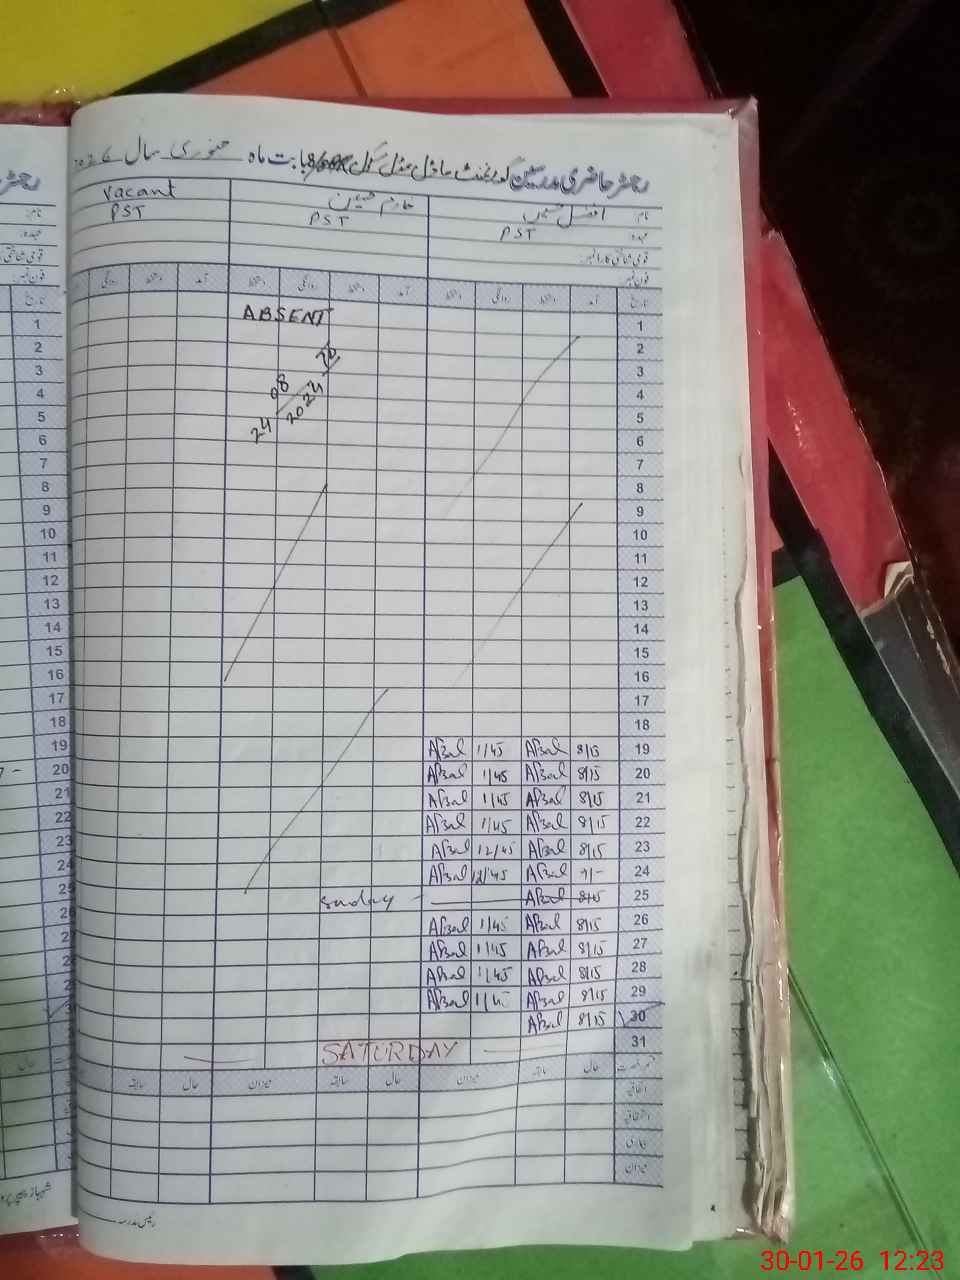 رجسٹر حاضری مدرسین گورنمنٹ ماڈل مڈل سکول بابت ماہ جنوری سال 2026
نام: افضل حسین خادم حسین vacant
عہدہ: PST PST PST
قومی شناختی کارڈ نمبر:
فون نمبر:
تاریخ آمد دستخط روانگی دستخط آمد دستخط روانگی دستخط آمد دستخط روانگی
1 ABSENT
2
3
4
5
6
24 08 2024
7
8
9
10
11
12
13
14
15
16
17
18
19 8/15 Afzal 1/45 Afzal
20 8/15 Afzal 1/45 Afzal
21 8/15 Afzal 1/45 Afzal
22 8/15 Afzal 1/45 Afzal
23 8/15 Afzal 12/45 Afzal
24 Afzal 12/45 Afzal
25 8/15 Afzal Sunday
26 8/15 Afzal 1/45 Afzal
27 8/15 Afzal 1/45 Afzal
28 8/15 Afzal 1/45 Afzal
29 8/15 Afzal 1/45 Afzal
30 8/15 Afzal
31 SATURDAY
حال سابقہ میزان حال سابقہ میزان حال سابقہ
اتفاقیہ
بیماری
میزان
رئیس مدرسہ
30-01-26 12:23